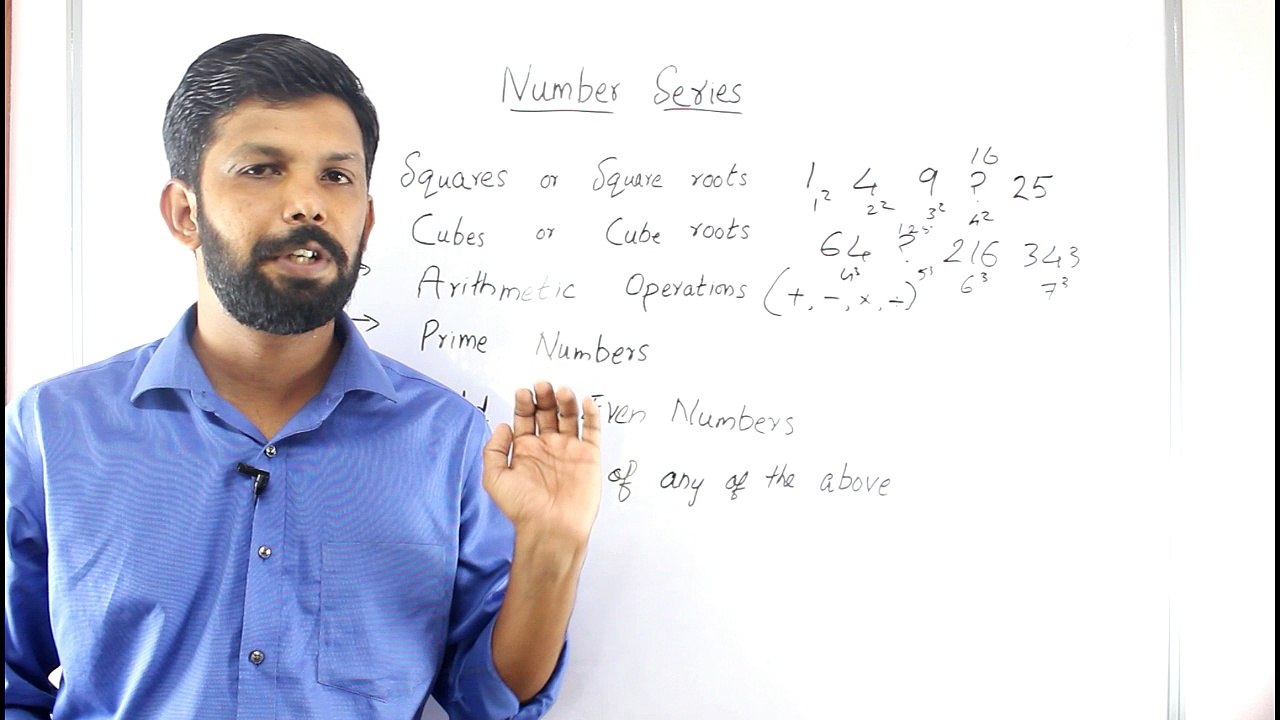 Number Series
16
Squares or Square roots 1 4 9 ? 25
1² 2² 3² 4²
125
Cubes or Cube roots 64 ? 216 343
4³ 5³ 6³ 7³
Arithmetic Operations (+, -, ×, ÷)
→ Prime Numbers
Even Numbers
of any of the above